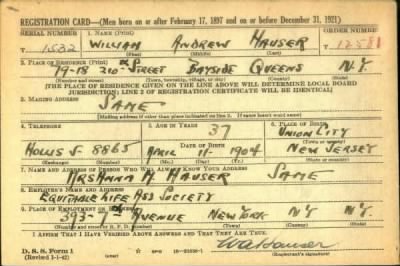 REGISTRATION CARD—(Men born on or after February 17, 1897 and on or before December 31, 1921)
SERIAL NUMBER 1. NAME (Print) ORDER NUMBER
T 1532 WILLIAM ANDREW HAUSER T 12581
(First) (Middle) (Last)
2. PLACE OF RESIDENCE (Print)
79-18 210th STREET BAYSIDE QUEENS N.Y.
(Number and street) (Town, township, village, or city) (County) (State)
[THE PLACE OF RESIDENCE GIVEN ON THE LINE ABOVE WILL DETERMINE LOCAL BOARD
JURISDICTION; LINE 2 OF REGISTRATION CERTIFICATE WILL BE IDENTICAL]
3. MAILING ADDRESS
SAME
[Mailing address if other than place indicated on line 2. If same insert word same]
4. TELEPHONE 5. AGE IN YEARS 6. PLACE OF BIRTH
37 UNION CITY
HOLLIS 5-8865 DATE OF BIRTH (Town or county)
APRIL 11 1904 NEW JERSEY
(Exchange) (Number) (Mo.) (Day) (Yr.) (State or country)
7. NAME AND ADDRESS OF PERSON WHO WILL ALWAYS KNOW YOUR ADDRESS
MRS ANNA M HAUSER SAME
8. EMPLOYER'S NAME AND ADDRESS
EQUITABLE LIFE ASS SOCIETY
9. PLACE OF EMPLOYMENT OR BUSINESS
393-7th AVENUE NEW YORK NY NY.
(Number and street or R. F. D. number) (Town) (County) (State)
I AFFIRM THAT I HAVE VERIFIED ABOVE ANSWERS AND THAT THEY ARE TRUE.
D. S. S. Form 1
(Revised 1-1-42) (over) WA Hauser